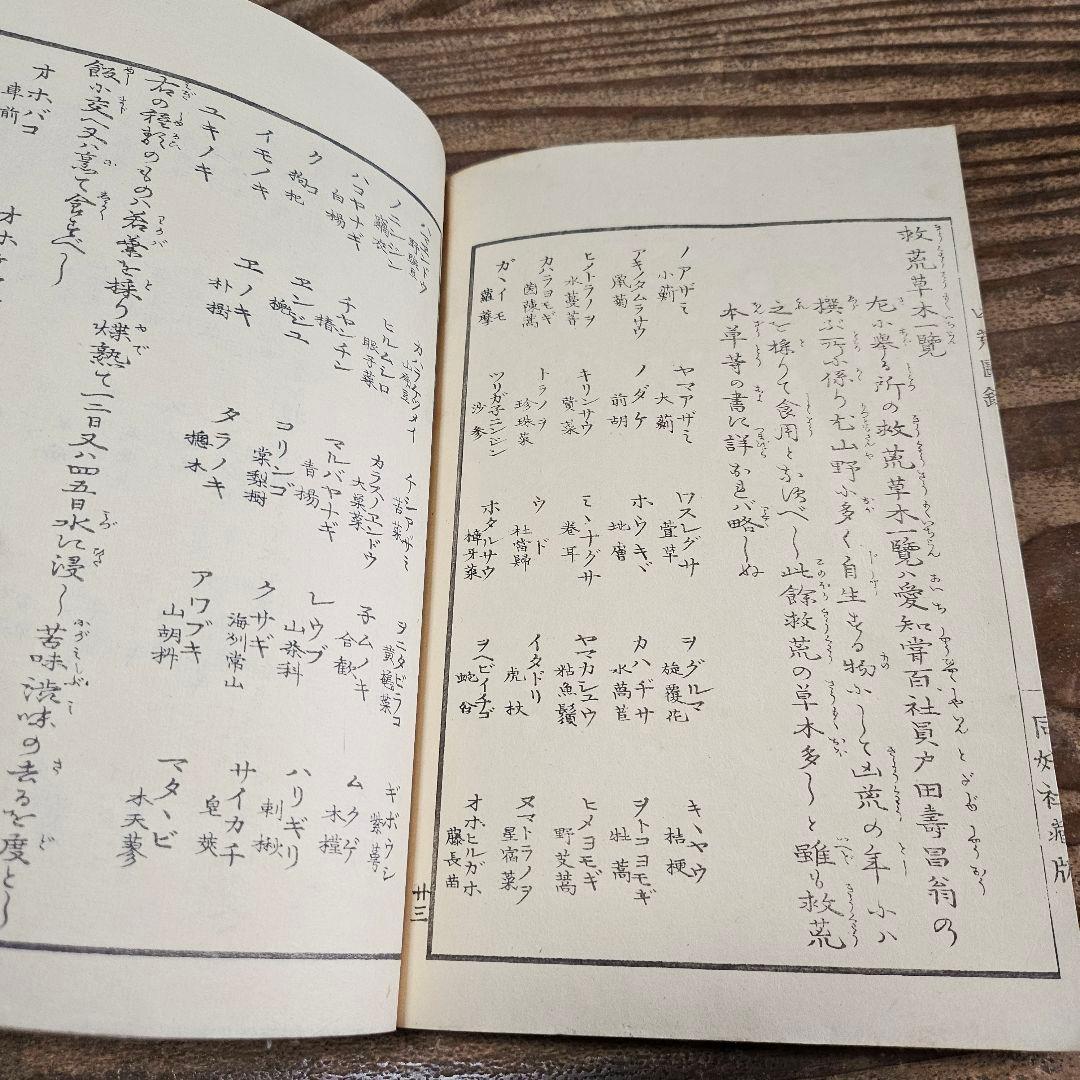 救荒草木一覧
左に舉る所の救荒草木一覧ハ愛知甞百社員戸田壽昌翁の
撰ぶ所に係り尤山野に多く自生する物にして凶荒の年にハ
之を採りて食用となすべし此餘救荒の草木多しと雖も救荒
本草等の書に詳なれバ略しぬ
ノアザミ ヤマアザミ ワスレグサ ヲグルマ キヽヤウ
小薊 大薊 萱草 旋覆花 桔梗
アキノタムラサウ ノダケ ホウキヾ カハヂサ ヲトコヨモギ
鼠菊 前胡 地膚 水萵苣 牡蒿
ヒノトラノヲ キリンサウ ミヽナグサ ヤマカシユウ ヒメヨモギ
水蔓菁 費菜 巻耳 粘魚鬚 野艾蒿
カハラヨモギ トラノヲ ウド イタドリ ヌマトラノヲ
茵蔯蒿 珍珠菜 土當歸 虎杖 星宿菜
ガヽイモ ツリガ子ニンジン ホタルサウ ヲヘビイチゴ オオヒルガホ
蘿藦 沙参 柴牙菜 蛇含 藤長苗
同好社藏版
廿三
カハラケツメイ ケシアザミ ヲニタビラコ ギボウシ
野豌豆 山扁豆 苦菜 黄鵪菜 紫萼
ノニンジン ヒルムシロ カラスノエンドウ 子ムノキ ムクゲ
眼子菜 大巣菜 合歓 木槿
ハコヤナギ チヤンチン マルバヤナギ レウブ ハリギリ
白楊 椿 青楊 山茶科 刺楸
クコ エンジユ コリンゴ クサギ サイカチ
枸杞 槐 棠梨樹 海州常山 皂莢
イモノキ エノキ タラノキ アワブキ マタヽビ
朴樹 楤木 山胡桃 木天蓼
ユキノキ
右の種類のものハ若葉を採り煠熟て一二日又ハ四五日水に浸し苦味渋味の去るを度とし
飯に交へ又ハ煮て食すべし
オホバコ
車前